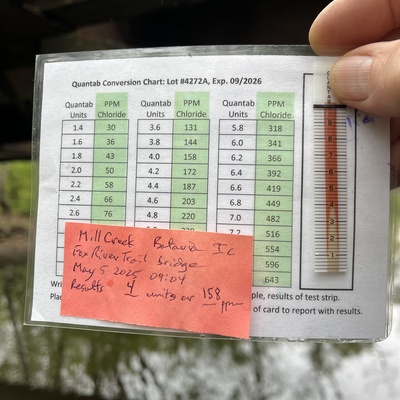 Quantab Conversion Chart: Lot #4272A, Exp. 09/2026
Quantab Units PPM Chloride Quantab Units PPM Chloride Quantab Units PPM Chloride
1.4 30 3.6 131 5.8 318
1.6 36 3.8 144 6.0 341
1.8 43 4.0 158 6.2 366
2.0 50 4.2 172 6.4 392
2.2 58 4.4 187 6.6 419
2.4 66 4.6 203 6.8 449
2.6 76 4.8 220 7.0 482
7.2 516
554
596
643
Mill Creek Batavia IL
Fox River Trail Bridge
May 5 2025 09:04
Results 4 units or 158 ppm
ple, results of test strip.
of card to report with results.